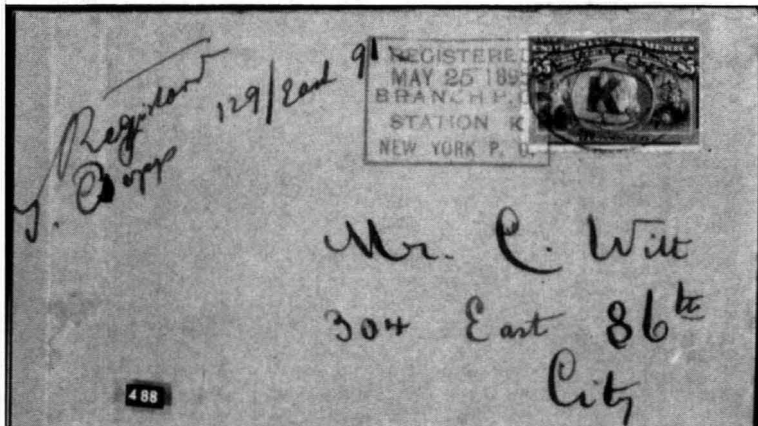 Registered
129/East 91
REGISTERED
MAY 25 189
BRANCH P.O.
STATION K
NEW YORK P. O.
K
Mr. C. Witt
304 East 86th
City
488